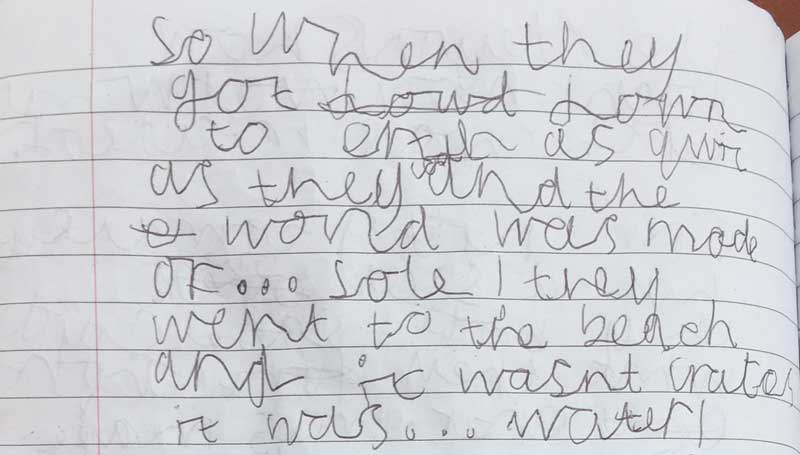 so when they
got dowt down
to erth as quir
as they and the
world was made
of... sole! they
went to the beach
and it wasnt crates
it was... water!